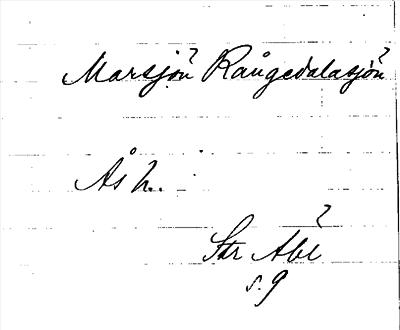 Marsjön? Rångedalasjön?
Ås h.
Str Abl?
s. 9